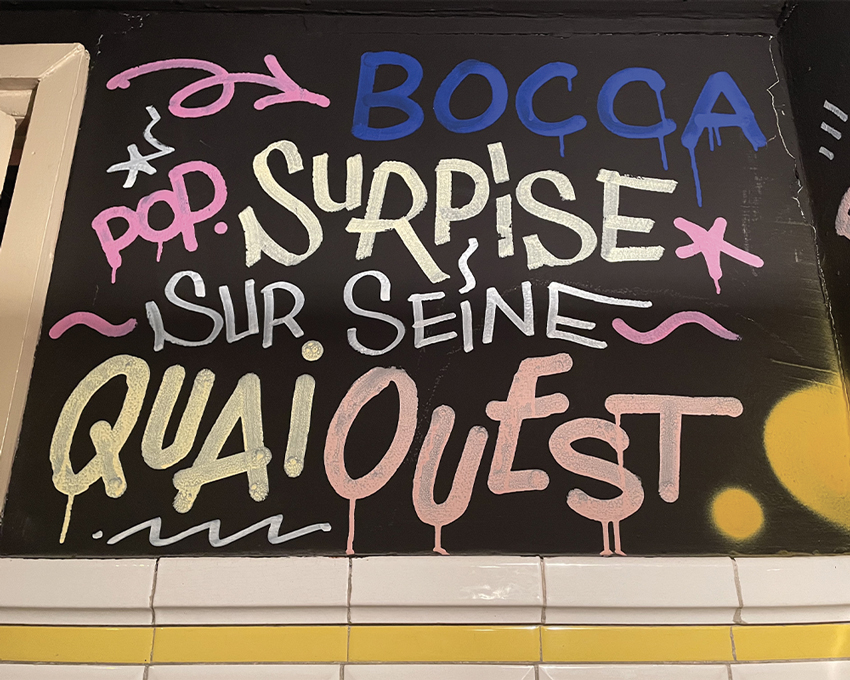 BOCCA
POP. SURPISE
SUR SEINE
QUAI OUEST